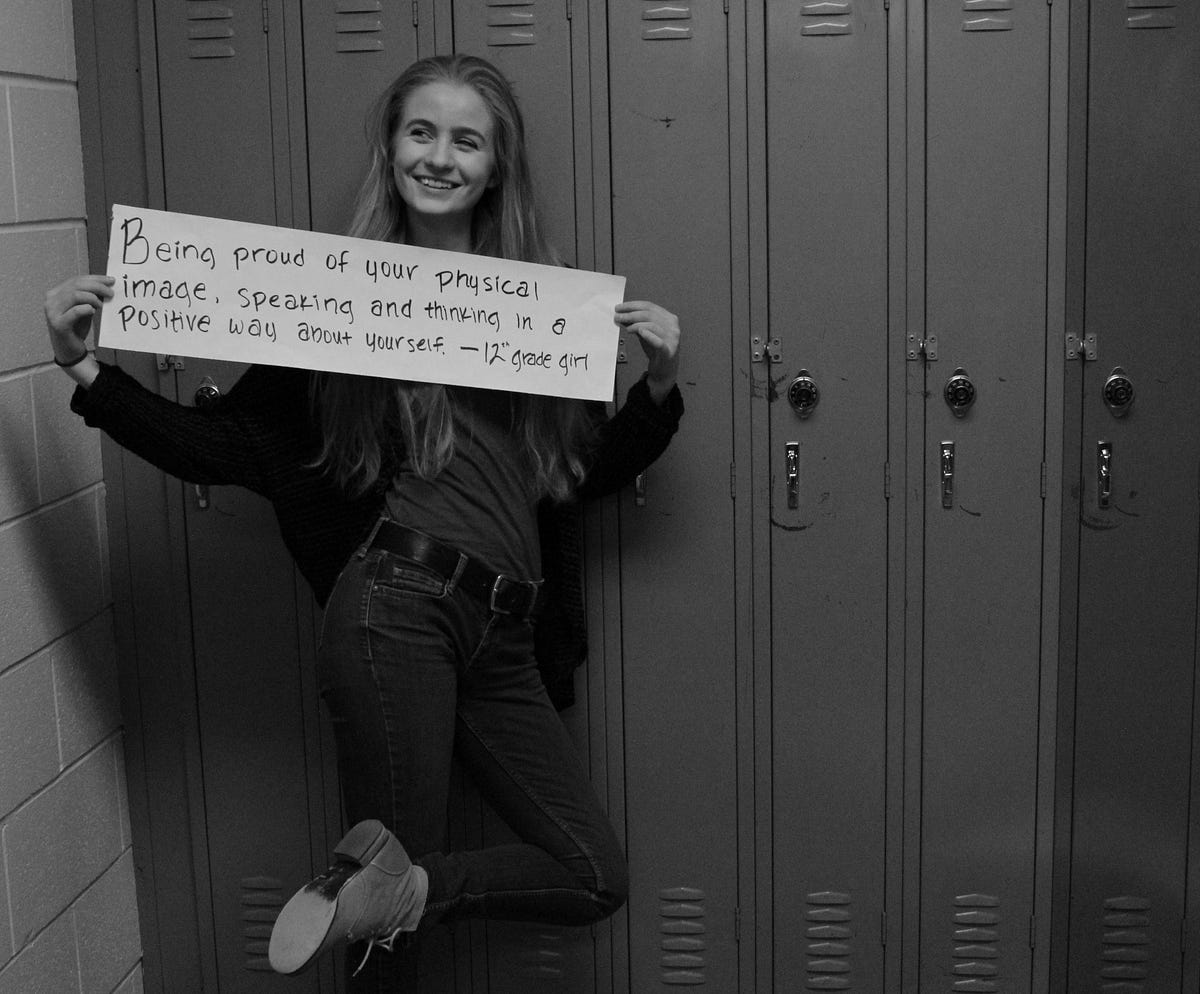 Being proud of your physical
image, speaking and thinking in a
positive way about yourself. —12th grade girl